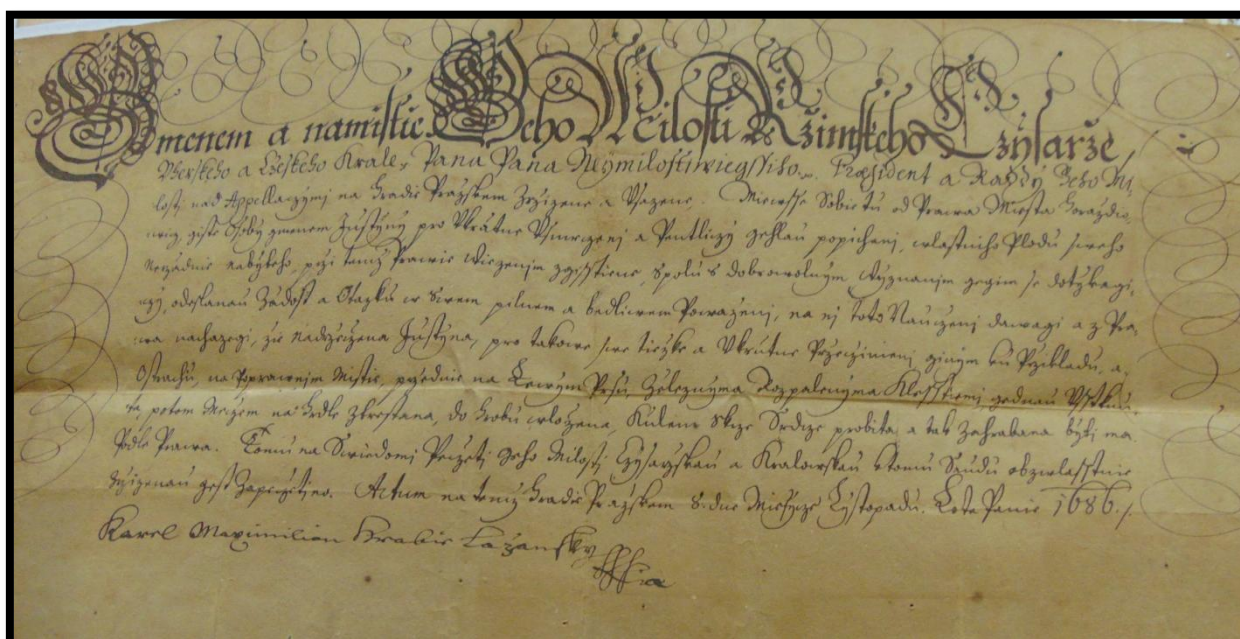 Gmenem a namistie Geho Milosti Ržimskeho Czysarže,
Uherskeho a Czeskeho Krale, Pana Pana Neymilostiwiegssiho. Præsident a Raddy Geho Mi
losti nad Appellaczymi na Hradie Pražskem Zržizene a Wsazene. Miewsse Sobie tu od Prawa Miesta Horaždio
wicz, giste Osoby gmenem Justyny pro Ukrutne Usmrczenj a Pentliczy gehlau popichanj, wlastniho Plodu sweho
Neržadnie nabyteho, prži temž Prawie Wiezenjm zgisstiene, spolu s dobrowolnym Wyznanjm gegim se dotykagi,
czy, odeslanau Žadost a Otazku w Swem pilnem a bedliwem Powaženj, na nj toto Nauczenj dawagi a z Pra,
wa nachazegi, že nadržečena Justyna, pro takowe swe tiežke a Ukrutne Pržecžinienj, ginym ku Pržikladu, a,
Ostrachu, na Poprawnjm Mistie, pržednie na Lewym Prsu Železnyma Rozpalenyma Klesstiemi gednau Usstknu,
ta, potom Mecžem na Hrdle Ztrestana, do Hrobu wložena, Kulem skrze Srdcze probita a tak Zahrabana byti ma
Podle Prawa. Tomu na Swiedomj Pecžetj Geho Milosti Czysaržskau a Kralowskau k tomu Saudu obzwlasstnie
Zržizenau gest Zapecžetieno. Actum na temž Hradie Pražskem 8. dne Miesycze Lystopadu. Leta Panie 1686.
Karel Maximilian Hrabie Lažansky